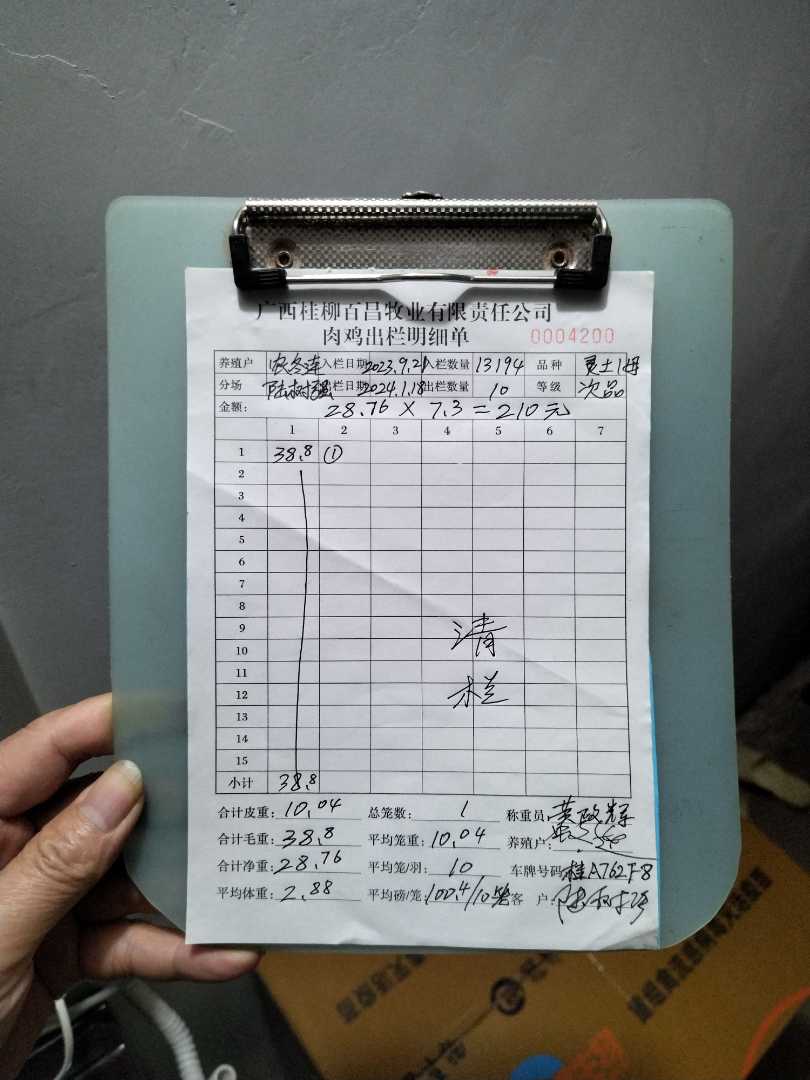 广西桂柳百昌牧业有限责任公司
肉鸡出栏明细单 0004200
养殖户 农冬连 入栏日期 2023.9.21 入栏数量 13194 品种 灵土1母
分场 陆树强 出栏日期 2024.1.18 出栏数量 10 等级 次品
金额: 28.76 × 7.3 = 210元
1 2 3 4 5 6 7
1 38.8 ①
2
3
4
5
6
7
8
9 清
10
11
12 栏
13
14
15
小计 38.8
合计皮重: 10.04 总笼数: 1 称重员:
合计毛重: 38.8 平均笼重: 10.04 养殖户:
合计净重: 28.76 平均笼/羽: 10 车牌号码: 桂A762F8
平均体重: 2.88 平均磅/笼: 100.4/10 客 户: